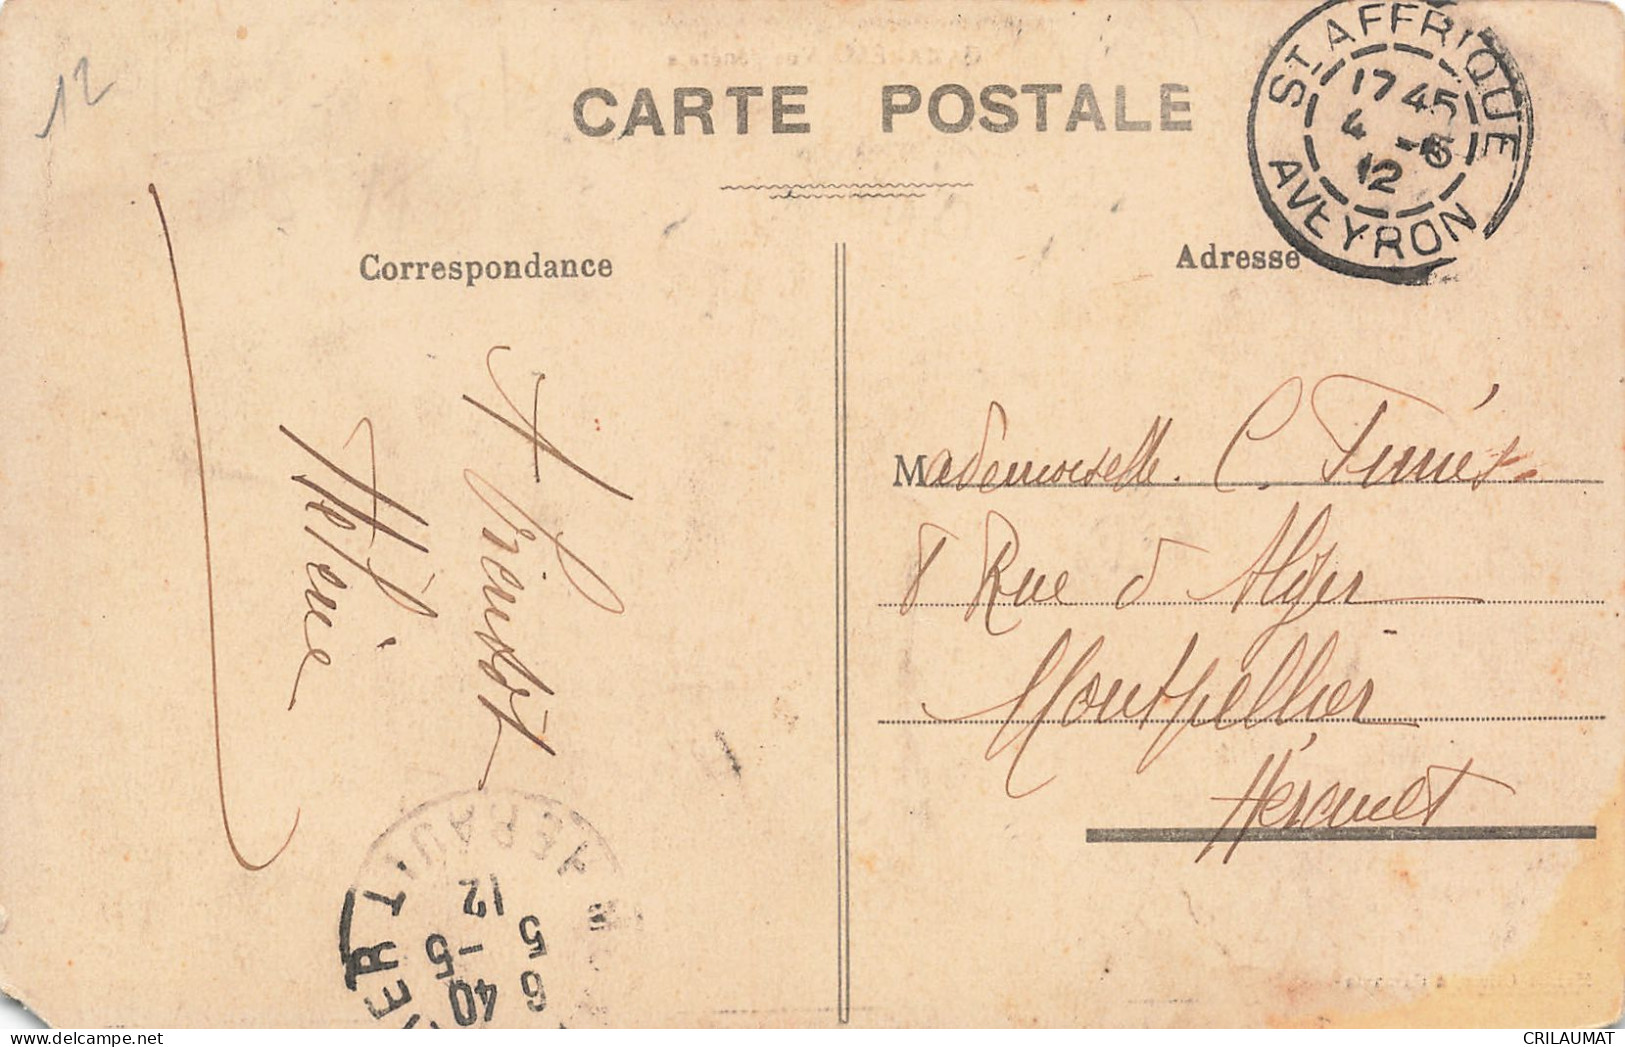 12
CARTE POSTALE
ST AFFRIQUE
17 45
4 -5
12
AVEYRON
Correspondance
Adresse
A bientôt
Mademoiselle C.
8 Rue d Alger
Montpellier
Hérault
HERAULT
6 40
5 -5
12
CRILAUMAT